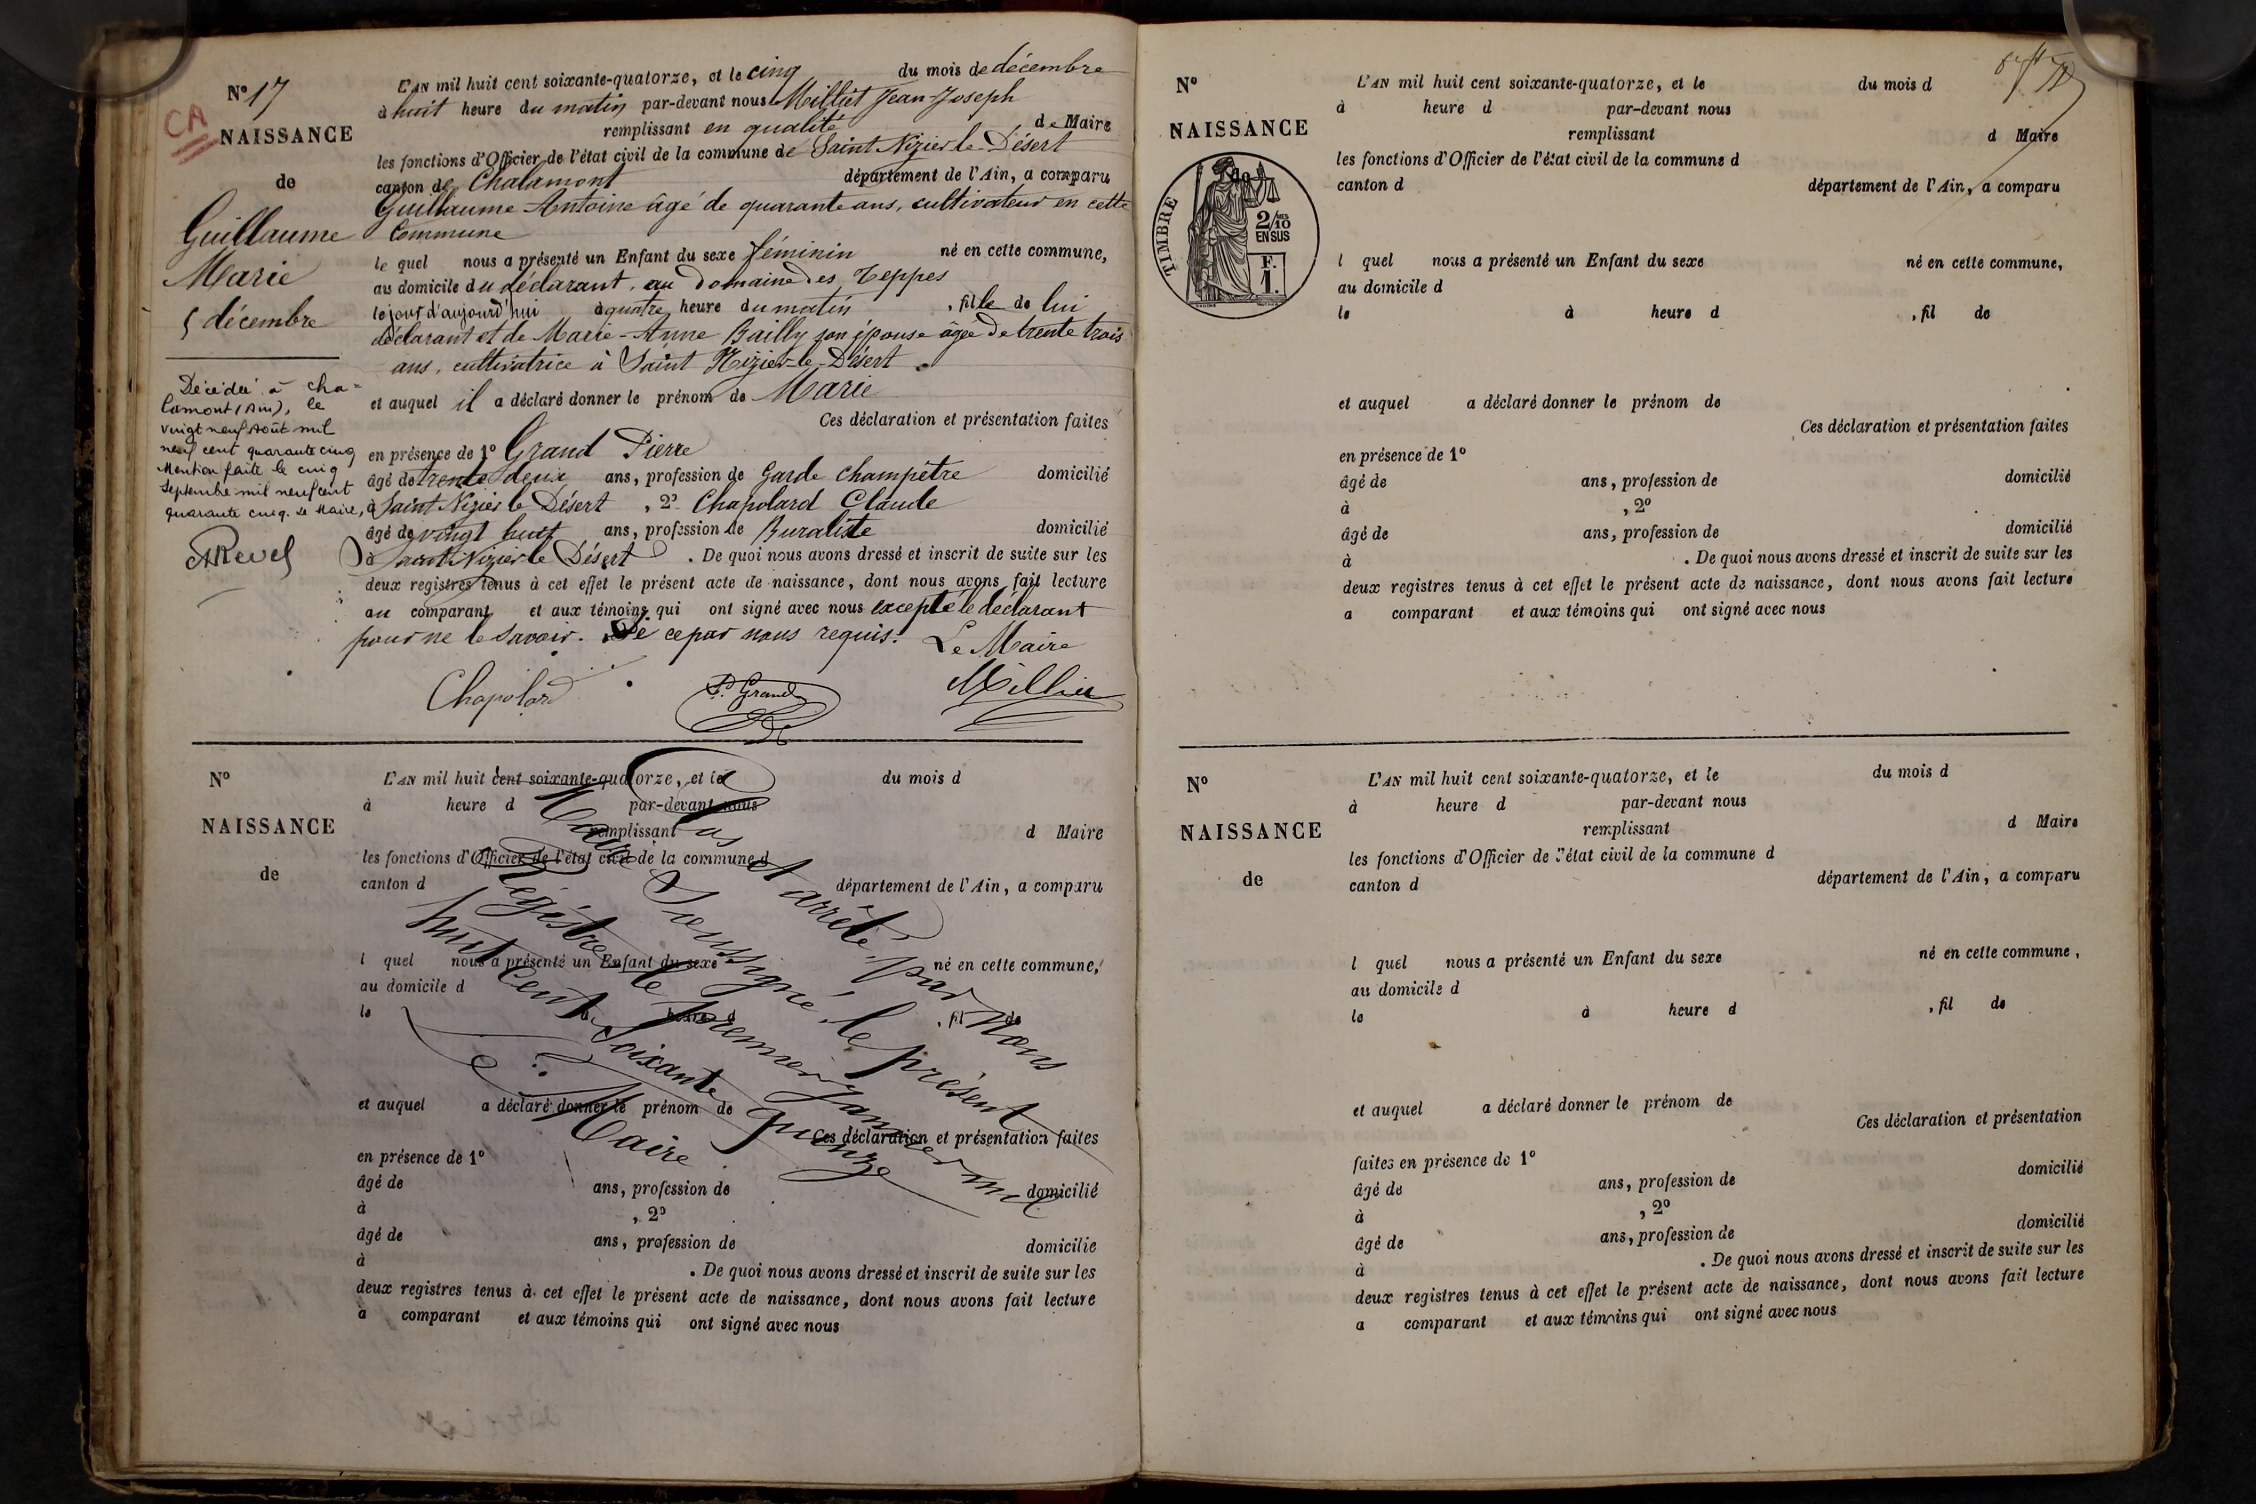 N° 17
CA
NAISSANCE
de
Guillaume
Marie
5 décembre
Décédée à Cha=
lamont (Ain), le
vingt neuf Août mil
neuf cent quarante cinq
Mention faite le cinq
Septembre mil neuf cent
quarante cinq. Le Maire,
Revel
L'AN mil huit cent soixante-quatorze, et le cinq du mois de décembre
à huit heure du matin par-devant nous Milliet Jean-Joseph
remplissant en qualité de Maire
les fonctions d'Officier de l'état civil de la commune de Saint Nizier le Désert
canton de Chalamont département de l'Ain, a comparu
Guillaume Antoine âgé de quarante ans, cultivateur en cette
Commune
le quel nous a présenté un Enfant du sexe féminin né en cette commune,
au domicile du déclarant, au domaine des Teppes
le jour d'aujourd'hui à quatre heure du matin, fille de lui
déclarant et de Marie-Anne Bailly son épouse âgée de trente trois
ans, cultivatrice à Saint Nizier-le-Désert.
et auquel il a déclaré donner le prénom de Marie
Ces déclaration et présentation faites
en présence de 1° Grand Pierre
âgé de trente deux ans, profession de Garde champêtre domicilié
à Saint Nizier le Désert, 2° Chapolard Claude
âgé de vingt huit ans, profession de Buraliste domicilié
à Saint-Nizier le Désert. De quoi nous avons dressé et inscrit de suite sur les
deux registres tenus à cet effet le présent acte de naissance, dont nous avons fait lecture
au comparant et aux témoins qui ont signé avec nous excepté le déclarant
pour ne le savoir. De ce par nous requis. Le Maire
Chapolard P. Grand Milliet
N°
NAISSANCE
de
L'AN mil huit cent soixante-quatorze, et le du mois d
à heure d par-devant nous
remplissant d Maire
les fonctions d'Officier de l'état civil de la commune d
canton d département de l'Ain, a comparu
l quel nous a présenté un Enfant du sexe né en cette commune,
au domicile d
le à heure d , fil de
et auquel a déclaré donner le prénom de
Ces déclaration et présentation faites
en présence de 1°
âgé de ans, profession de domicilié
à , 2°
âgé de ans, profession de domicilié
à . De quoi nous avons dressé et inscrit de suite sur les
deux registres tenus à cet effet le présent acte de naissance, dont nous avons fait lecture
a comparant et aux témoins qui ont signé avec nous
Clos et arrêté par Nous
Maire Soussigné, le présent
Régistre le premier Janvier mil
huit Cent Soixante Quinze
Le Maire
N°
NAISSANCE
de
TIMBRE
2/10 EN SUS
F.
1.
L'AN mil huit cent soixante-quatorze, et le du mois d
à heure d par-devant nous
remplissant d Maire
les fonctions d'Officier de l'état civil de la commune d
canton d département de l'Ain, a comparu
l quel nous a présenté un Enfant du sexe né en cette commune,
au domicile d
le à heure d , fil de
et auquel a déclaré donner le prénom de
Ces déclaration et présentation faites
en présence de 1°
âgé de ans, profession de domicilié
à , 2°
âgé de ans, profession de domicilié
à . De quoi nous avons dressé et inscrit de suite sur les
deux registres tenus à cet effet le présent acte de naissance, dont nous avons fait lecture
a comparant et aux témoins qui ont signé avec nous
N°
NAISSANCE
de
L'AN mil huit cent soixante-quatorze, et le du mois d
à heure d par-devant nous
remplissant d Maire
les fonctions d'Officier de l'état civil de la commune d
canton d département de l'Ain, a comparu
l quel nous a présenté un Enfant du sexe né en cette commune,
au domicile d
le à heure d , fil de
et auquel a déclaré donner le prénom de
Ces déclaration et présentation
faites en présence de 1°
domicilié
âgé de ans, profession de
à , 2°
âgé de ans, profession de domicilié
à . De quoi nous avons dressé et inscrit de suite sur les
deux registres tenus à cet effet le présent acte de naissance, dont nous avons fait lecture
a comparant et aux témoins qui ont signé avec nous